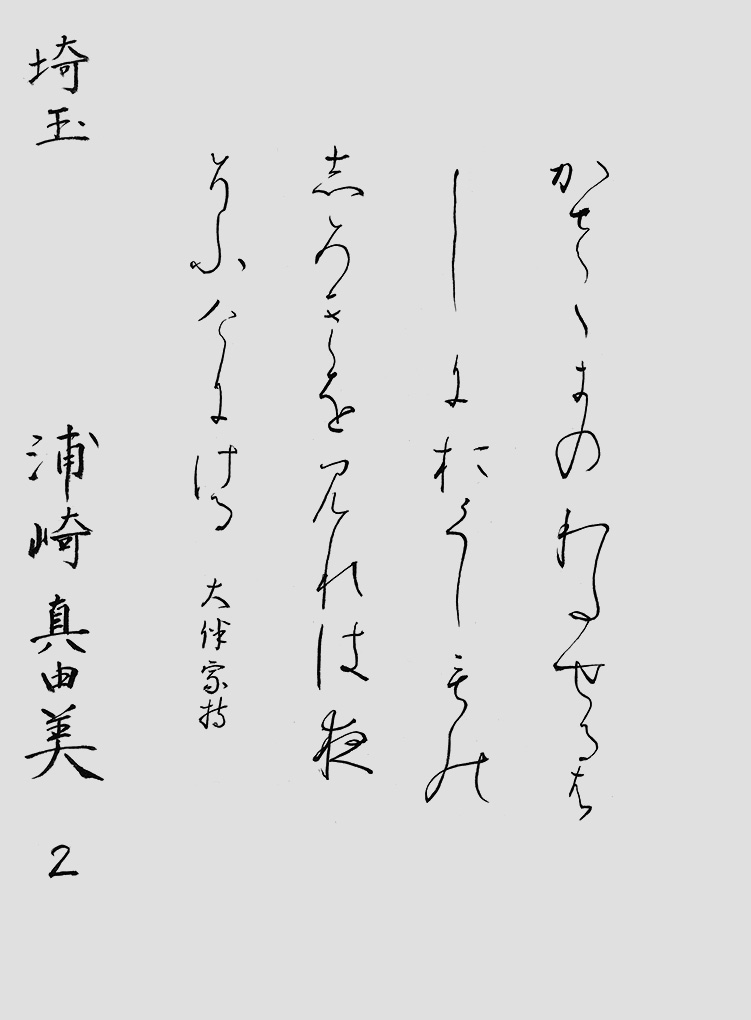 かさゝきのわたせるは
しにおくしもの
志ろきを見れは夜
そふけにける 大伴家持
埼玉 浦崎真由美 2